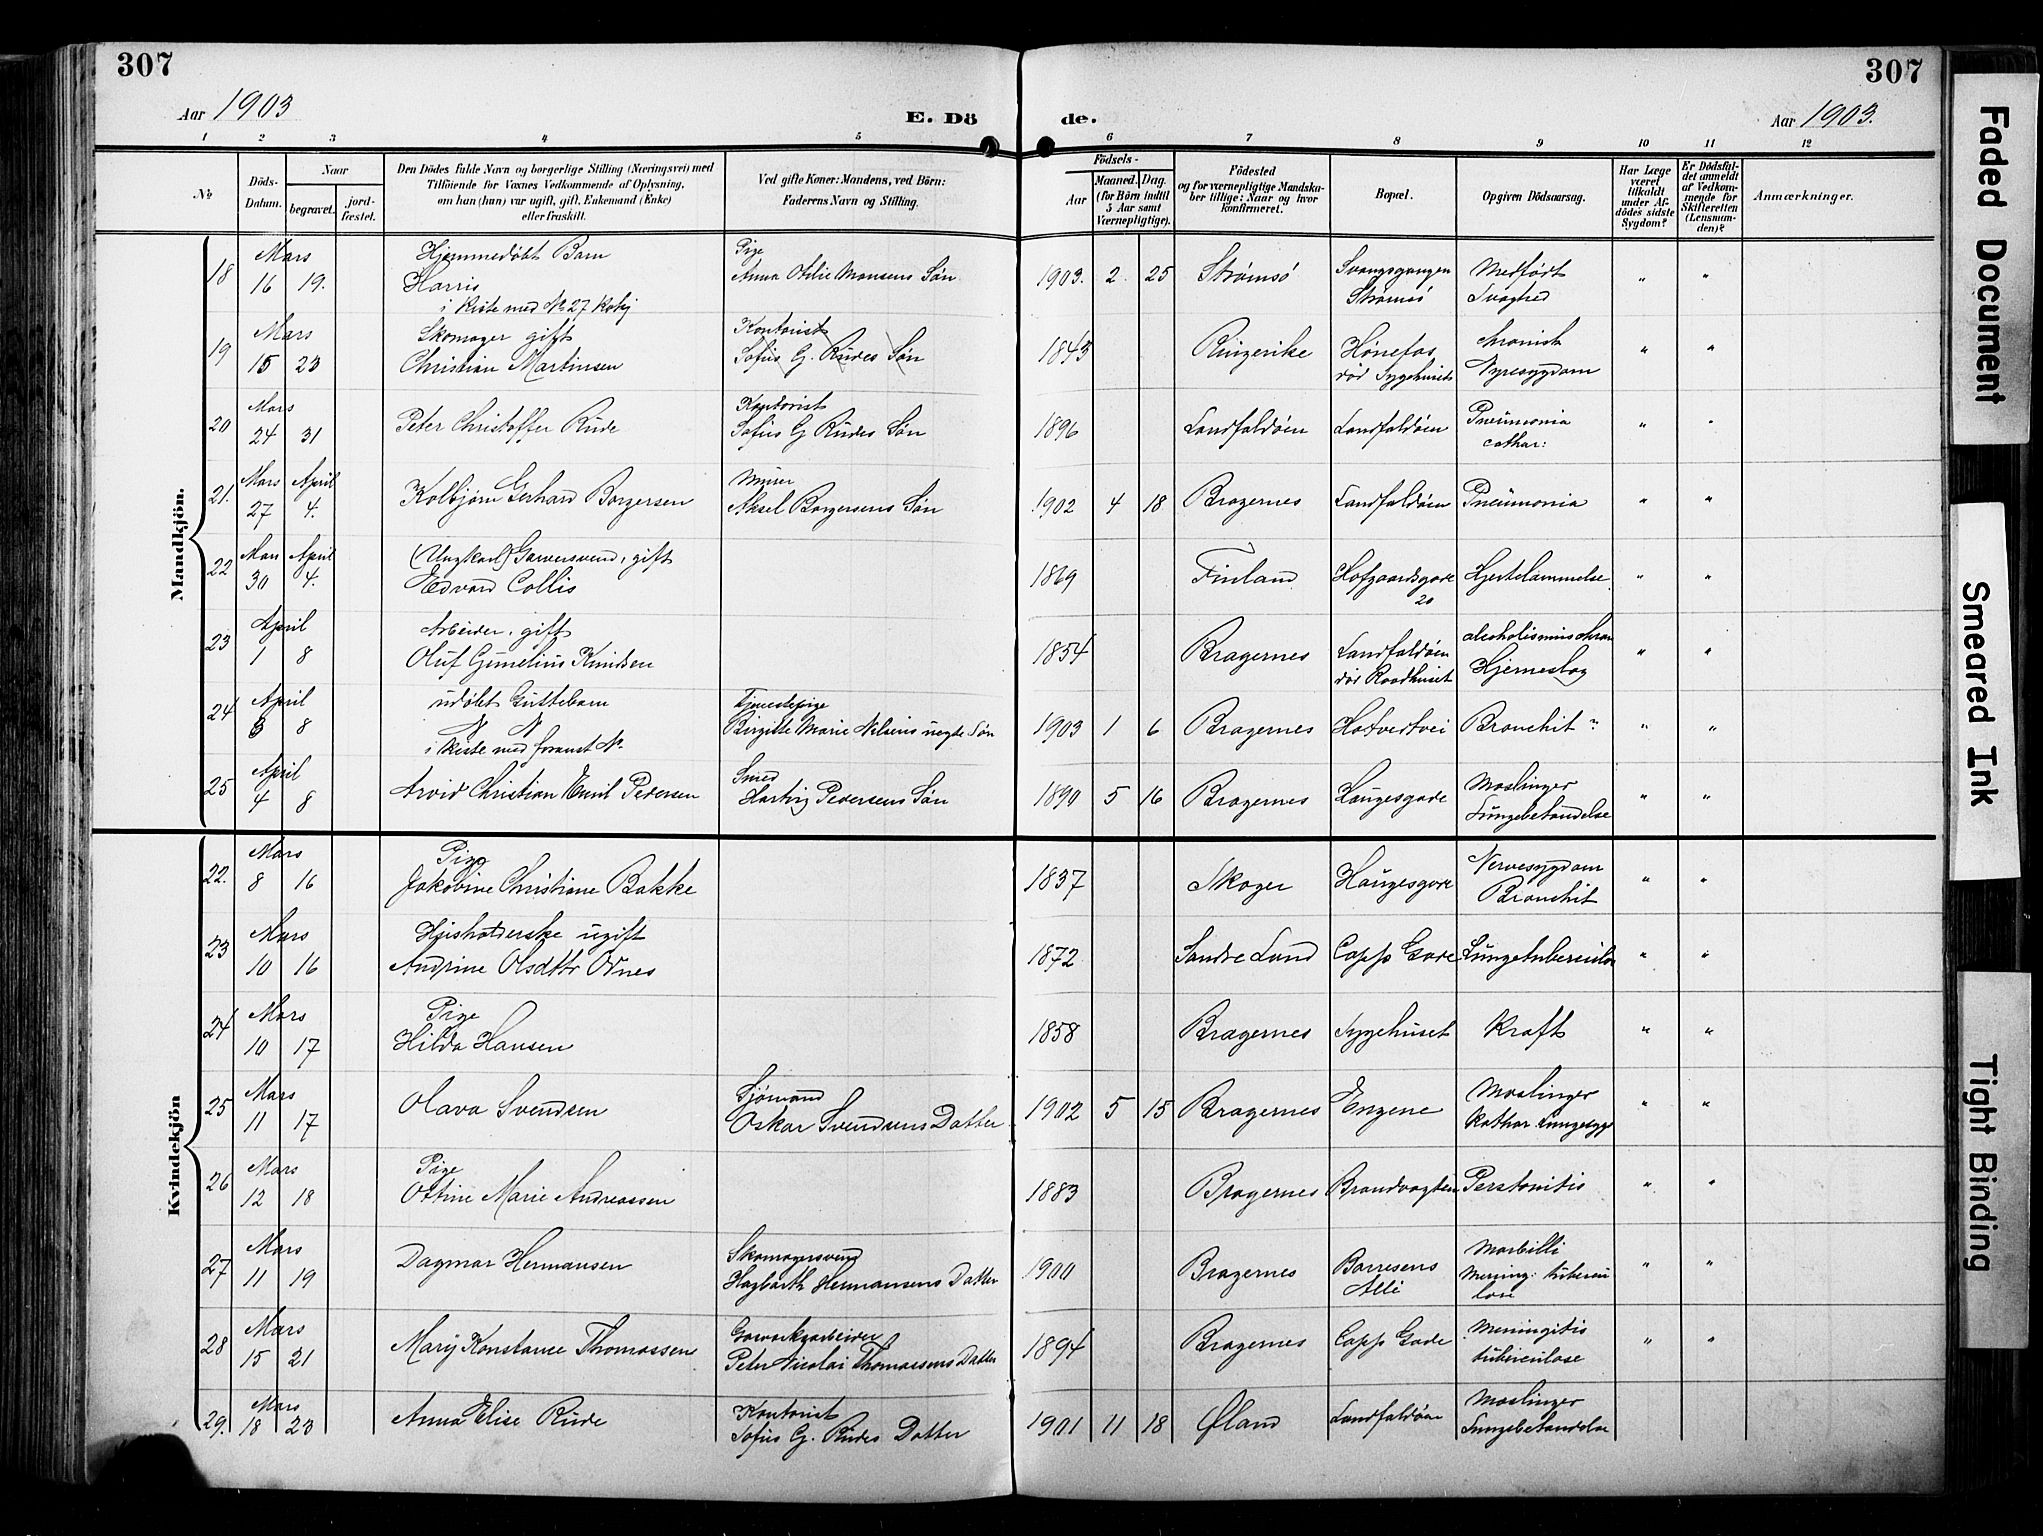 307
307
Aar 1903
E. Dö
de.
Aar 1903.
1 2 3 4 5 6 7 8 9 10 11 12
No
Döds-Datum.
Naar
begravet.
jord-fæstet.
Den Dödes fulde Navn og borgerlige Stilling (Næringsvei) med
Tilföiende for Voxnes Vedkommende af Oplysning,
om han (hun) var ugift, gift, Enkemand (Enke)
eller fraskilt.
Ved gifte Koner: Mandens, ved Börn:
Faderens Navn og Stilling.
Födsels-
Aar
Maaned. Dag.
(for Börn indtil
5 Aar samt
Værnepligtige).
Födested
og for værnepligtige Mandska-
ber tillige: Naar og hvor
konfirmeret.
Bopæl.
Opgiven Dödsaarsag.
Har Læge
været
tilkaldt
under Af-
dödes sidste
Sygdom?
Er Dödsfal-
det anmeldt
af Vedkom-
mende for
Skifteretten
(Lensman-
den)?
Anmærkninger.
Mandkjön.
18 Mars 16 19. Hjemmedöbt Barn Harris i Kiste med No 27 Kvkj Pige Anna Otilie Monsens Sön 1903. 2. 25 Strömsö Svangsgangen Strömsö Medfödt Svaghed " "
19 Mars 15 23 Skomager gift Christian Martinsen Kontorist Sofus G. Rudes Sön 1843 Ringerike Hönefos död Sygehuset chronisk Nyresygdom " "
20 Mars 24 31 Peter Christoffer Rude Kontorist Sofus G Rudes Sön 1896 Landfaldöen Landfaldöen Pneumonia cathar: " "
21. Mars 27 April 4. Kolbjörn Gerhard Borgersen Murer Aksel Borgersens Sön 1902 4 18 Bragernes Landfaldöen Pneumonia " "
22 Mars 30 April 4. (Ungkarl) Garversvend, gift Edvard Collis 1869 Finland Hofgaardsgade 20 Hjertelammelse " "
23 April 1 8 Arbeider, gift Oluf Gumelius Knudsen 1854 Bragernes Landfaldöen död Raadhuset alcoholismus chron Hjerneslag " "
24 April 3 8 udöbt Guttebarn N N i Kiste med foranst No Tjenestepige Birgitte Marie Nelsens uegte Sön 1903 1 6 Bragernes Hotvedtvei Bronchit " " "
25 April 4 8 Arvid Christian Emil Pedersen Smed Hartvig Pedersens Sön 1890 5 16 Bragernes Haugesgade Meslinger Lungebetændelse " "
Kvindekjön
22. Mars 8 16 Pige Jakobine Christiane Bakke 1837 Skoger Haugesgade Nervesygdom Bronchit " "
23 Mars 10 16 Husholderske ugift Andrine Olsdttr Odnes 1872 Søndre Land Capps Gade Lungetuberculos " "
24 Mars 10 17 Pige Hilda Hansen 1858 Bragernes Sygehuset Kræft " "
25 Mars 11 17 Olava Svendsen Sjömand Oskar Svendsens Datter 1902 5 15 Bragernes Engene Meslinger Kathar Lungesyge " "
26 Mars 12 18 Pige Ottine Marie Andreassen 1883 Bragernes Brandvagten Peritonitis " "
27 Mars 11 19 Dagmar Hermansen Skomagersvend Hagbarth Hermansens Datter 1900 Bragernes Borresens Allé Morbilli Mening: tubercu lose " "
28 Mars 15 21 Mary Konstance Thomassen Gasverksarbeider Peter Nicolai Thomassens Datter 1894 Bragernes Capps Gade Meningitis tuberculose " "
29. Mars 18 23 Anna Elise Rude Kontorist Sofus G. Rudes Datter 1901 11 18 Öland Landfaldöen Meslinger Lungebetændelse
Faded Document
Smeared Ink
Tight Binding